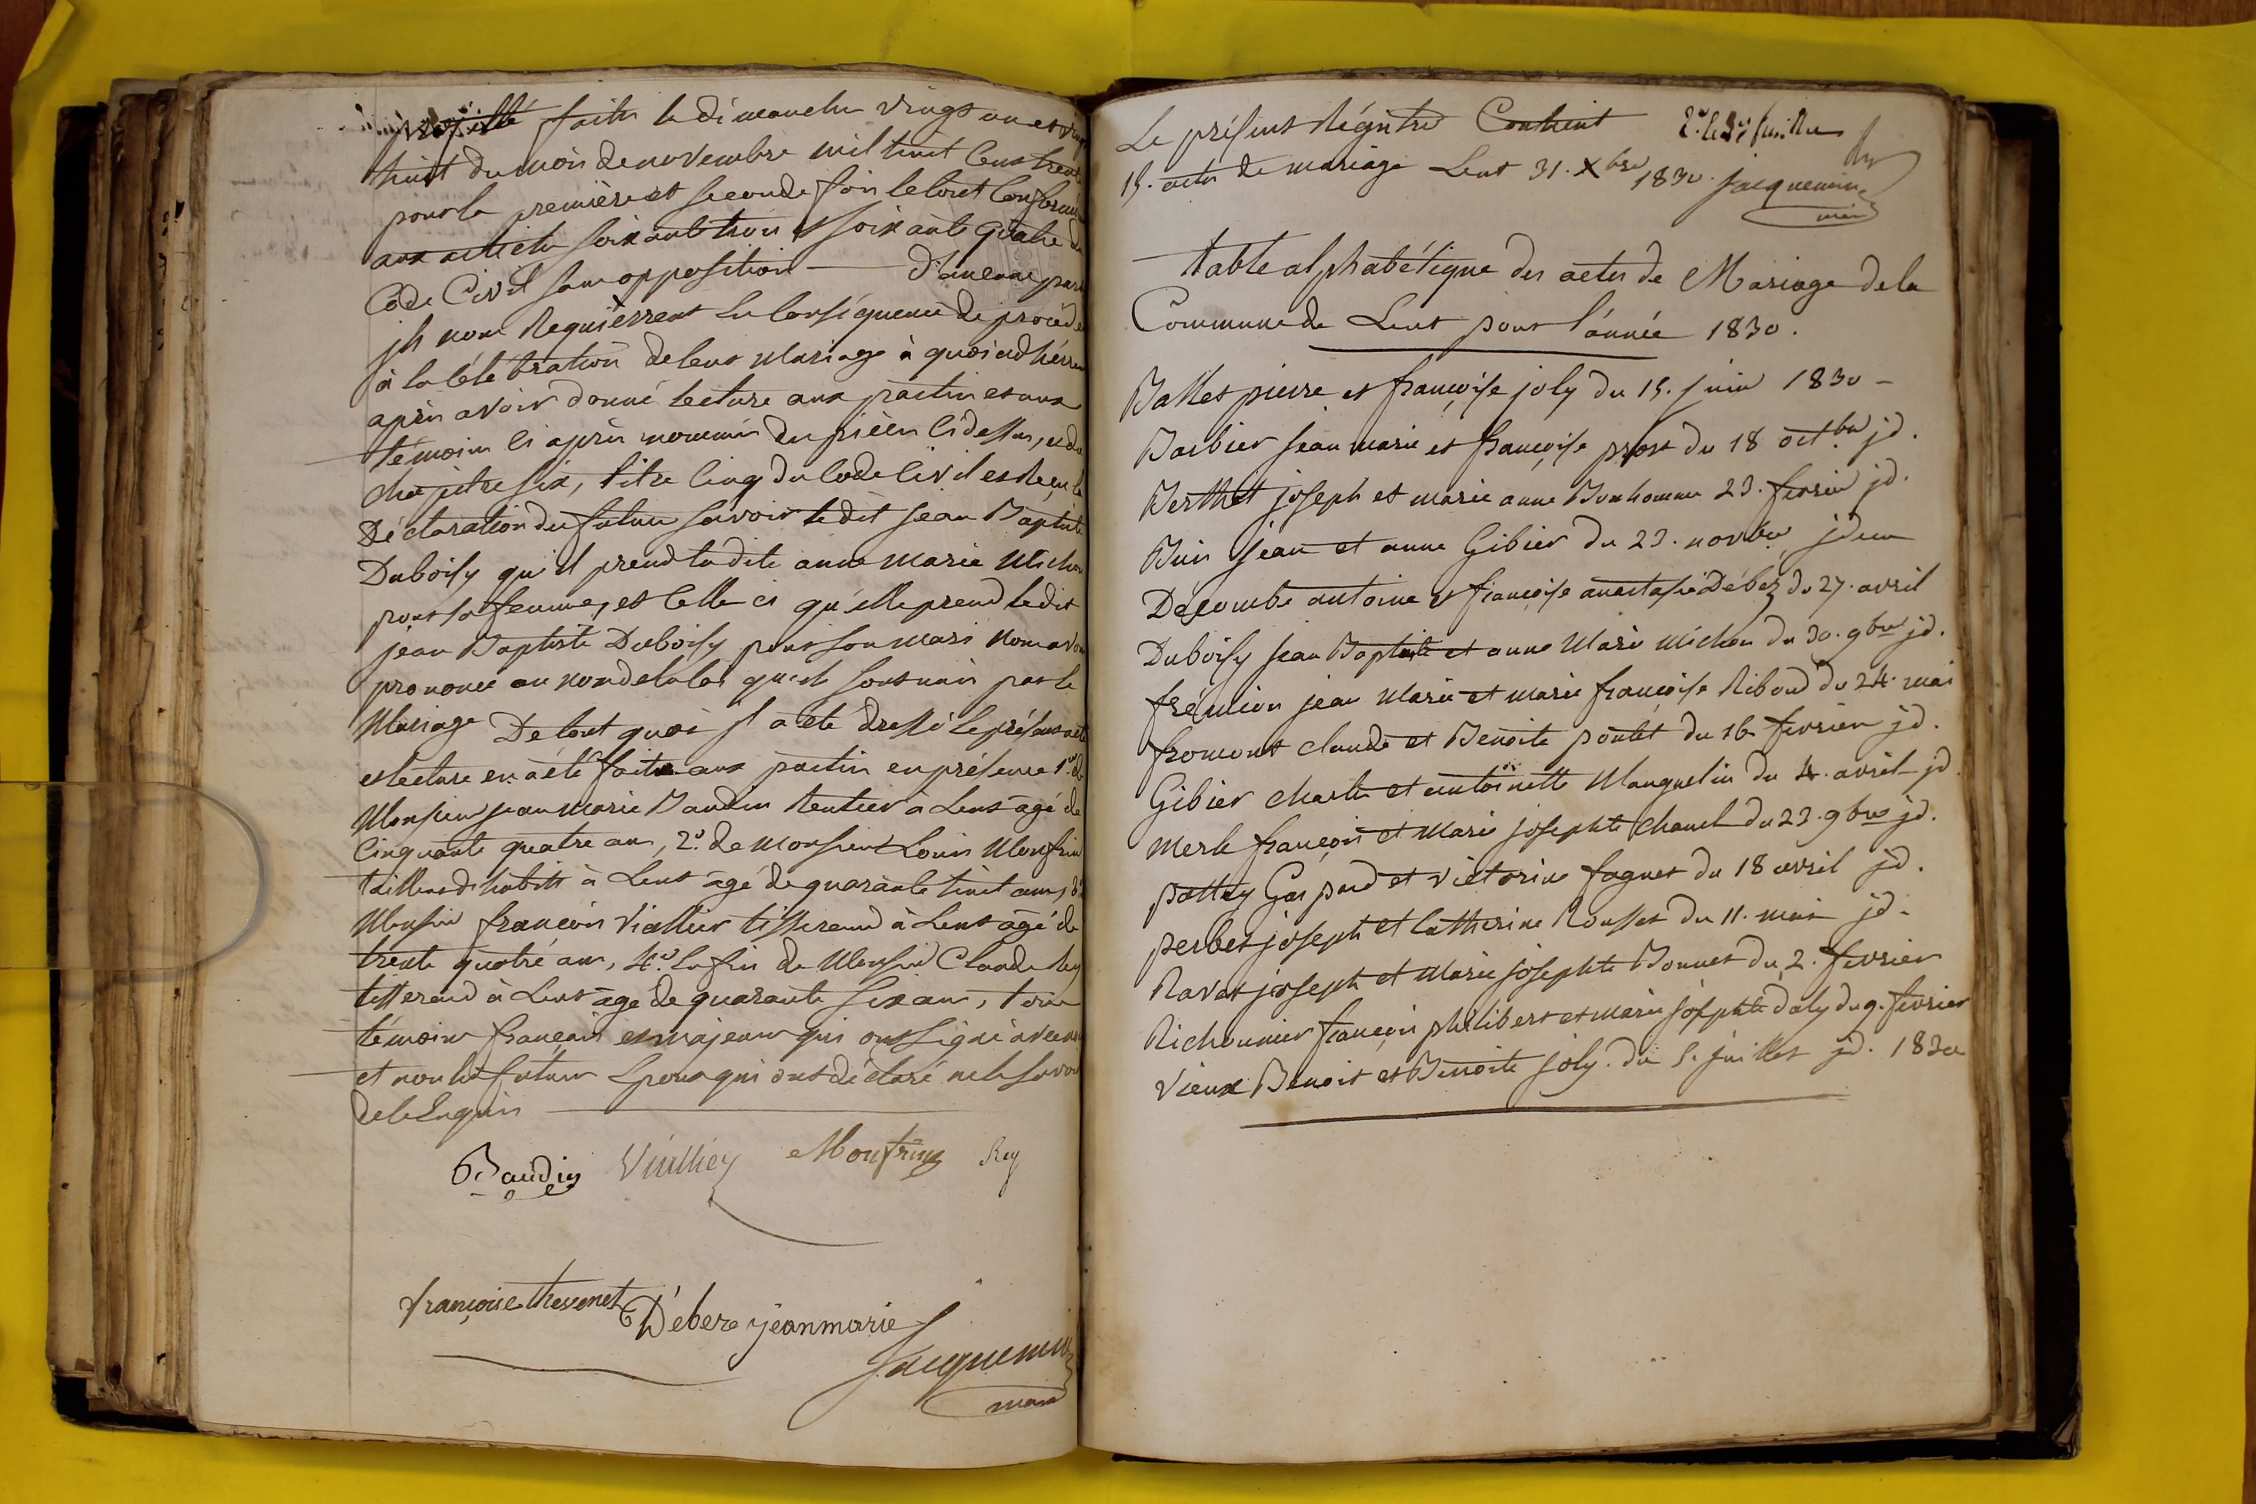 faite le dimanche vingt un et vingt
huit du mois de novembre mil huit Cent trente
pour la première et seconde fois le tout Conformé
aux articles soixante trois et soixante quatre du
Code Civil sans opposition — d'aucune part
jls nous Requièrrent En Conséquence de procéder
à la Célébration de leur Mariage à quoi adhérant
après avoir donné lecture aux parties et aux
témoins ci après nommés des pièces ci dessus, et du
chapitre six, titre Cinq du Code Civil et Reçu la
Déclaration des futurs savoir ledit jean Baptiste
Duboisy qu'il prend ladite anne marie Michon
pour sa femme, et Celle ci qu'elle prend ledit
jean Baptiste Duboisy pour son mari Nous avons
prononcé au nom de la loi qu'ils sont unis par le
Mariage De tout quoi jl a été dressé le présent acte
et lecture en a été faite aux parties en présence 1.º de
Monsieur jean marie Baudin Rentier à Lent âgé de
Cinquante quatre ans, 2.º de Monsieur Louis Monfrin
tailleur d'habits à Lent âgé de quarante huit ans, 3º
Monsieur françois Viallier tisserand à Lent âgé de
trente quatre ans, 4.º Enfin de Monsieur Claude Rey
tisserand à Lent âgé de quarante six ans, tous
témoins français et majeurs qui ont signé avec nous
et non les futurs Epoux qui ont déclaré ne le savoir
de ce Enquis
Baudin Viallier Monfrin Rey
françoise thevenet Débere jeanmarie
Jacquemin
maire
Le présent Régistre Contient
15. actes de mariage Lent 31. Xbre 1830. Jacquemin
maire
Table alphabétique des actes de Mariage de la
Commune de Lent pour l'année 1830.
Ballet pierre et françoise joly du 15. juin 1830 -
Barbier jean marie et françoise prost du 18 octbre jd.
Berthet joseph et marie anne Bonhomme 23. fevrier jd.
Buis jean et anne Gibier du 23. novbre jdem
Decombe antoine et françoise anastasie Débez du 27. avril
Duboisy jean Baptiste et anne Marie Michon du 30. 9bre jd.
frémion jean Marie et marie françoise Riboud du 24. mai
fromont claude et Benoite poulet du 16 fevrier jd.
Gibier charles et antoinette Manguelin du 4. avril jd.
Merle françois et Marie josephte Chanel du 23. 9bre jd.
Gaspard et victorine faguet du 18 avril jd.
perbet joseph et Catherine Rousset du 11. mai jd.
Ravat joseph et Marie josephte Bonnet du 2. fevrier
Richonnier françois philibert et marie josephte daly du 9. fevrier
Vieux Benoit et Benoite joly. du 5. juillet jd. 1830